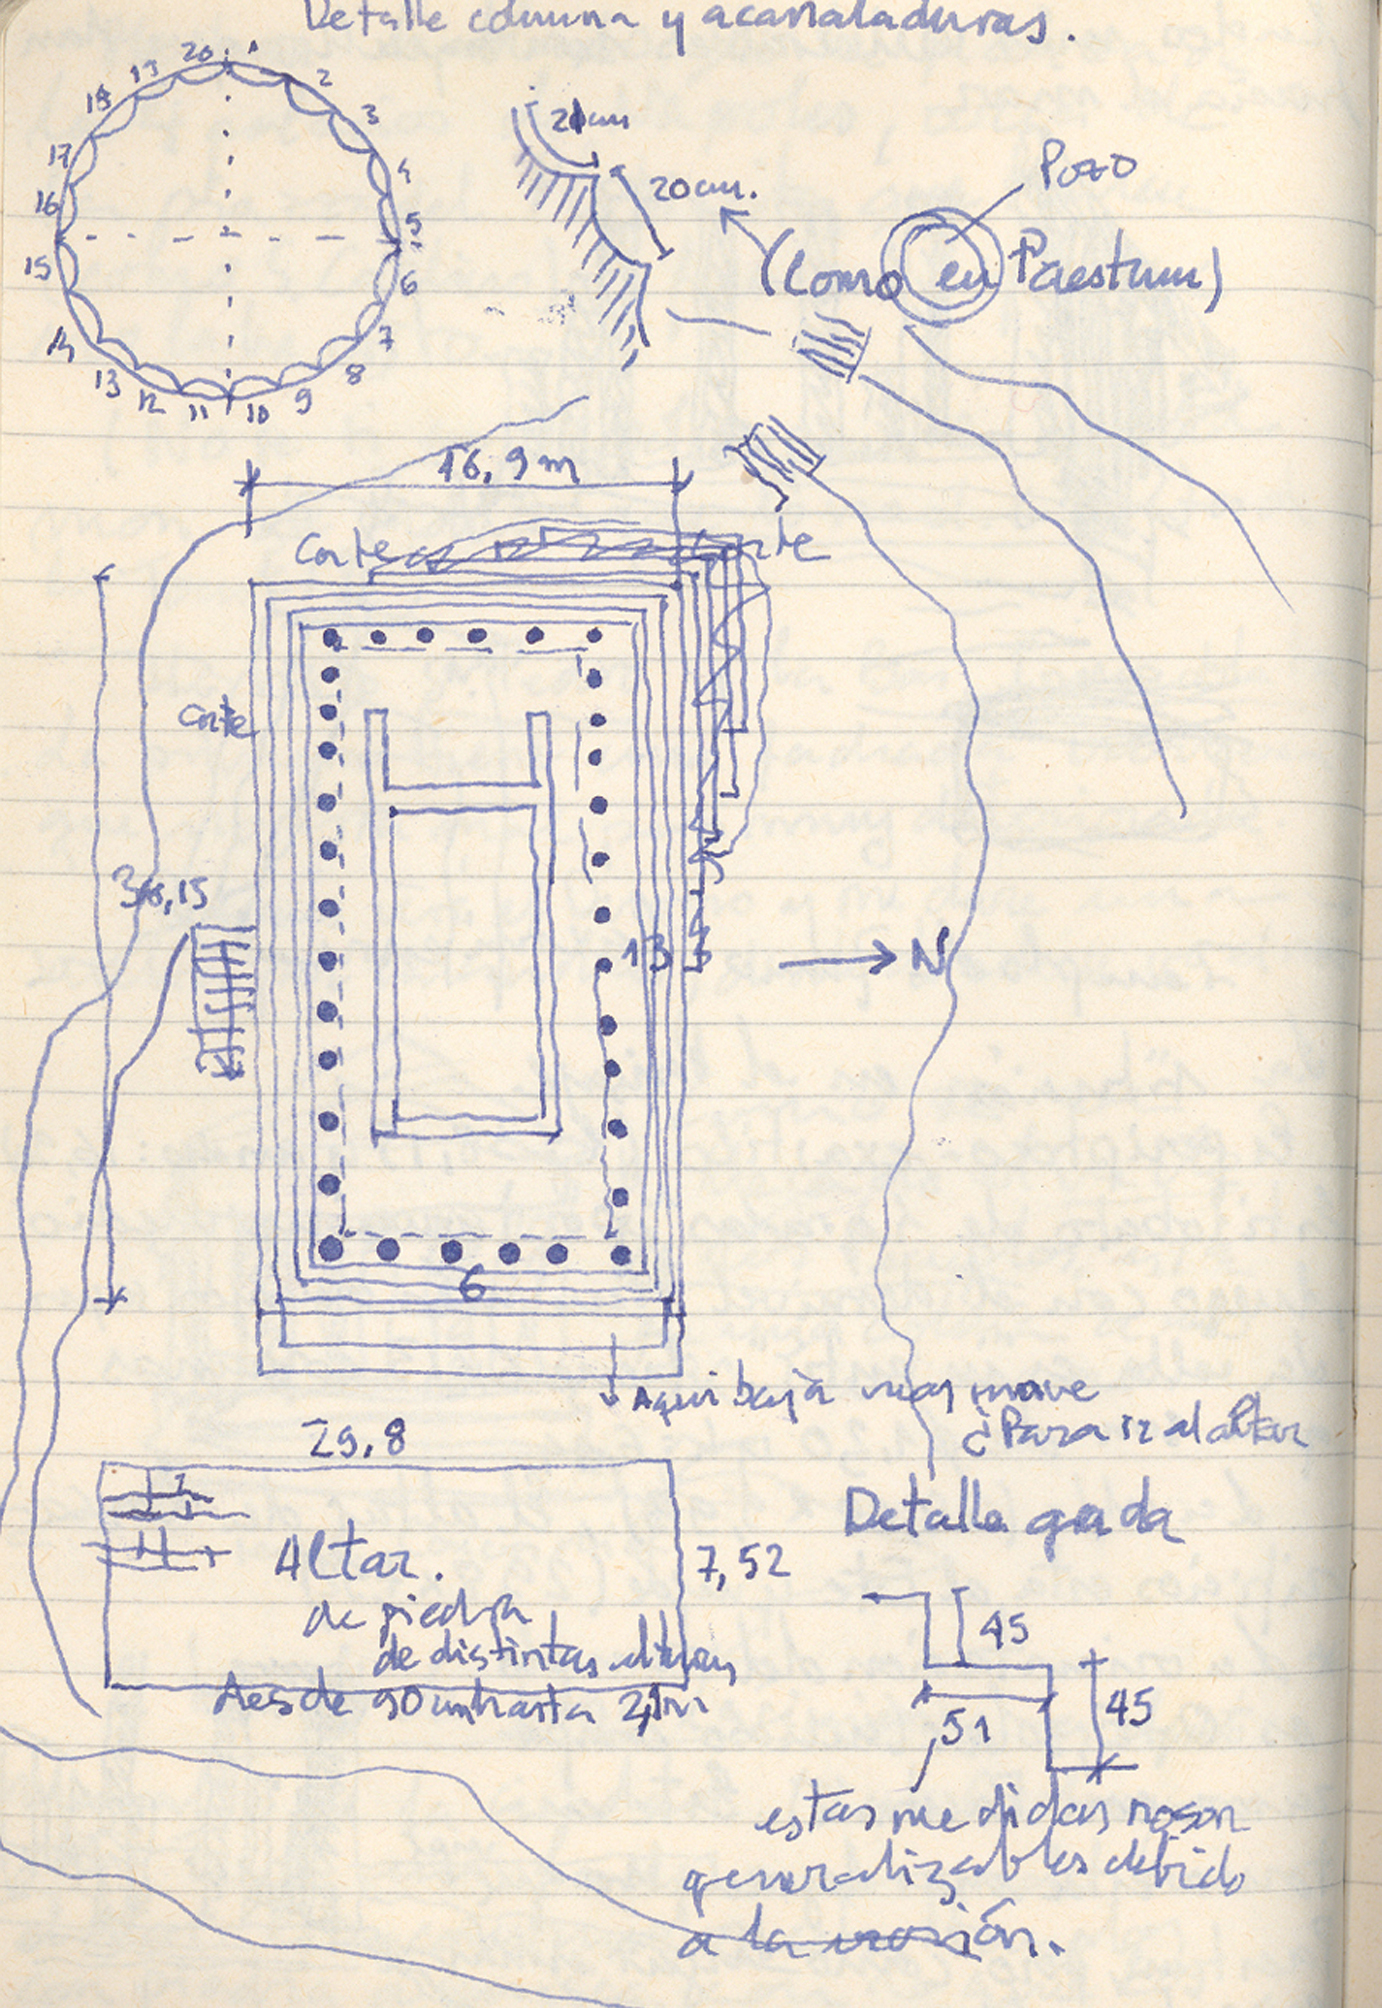 Detalle columna y acanaladuras.
1
2
3
4
5
6
7
8
9
10
11
12
13
14
15
16
17
18
19
20
20cm
20cm.
Pozo
(Como en Paestum)
16,9m
Corte
corte
corte
38,15
13
N
6
Aqui baja mas suave
¿Para ir al altar
29,8
Altar.
de piedra
de distintas alturas
desde 90cm hasta 2,1m
7,52
Detalle grada
45
51
45
estas medidas no son
generalizables debido
a la erosión.